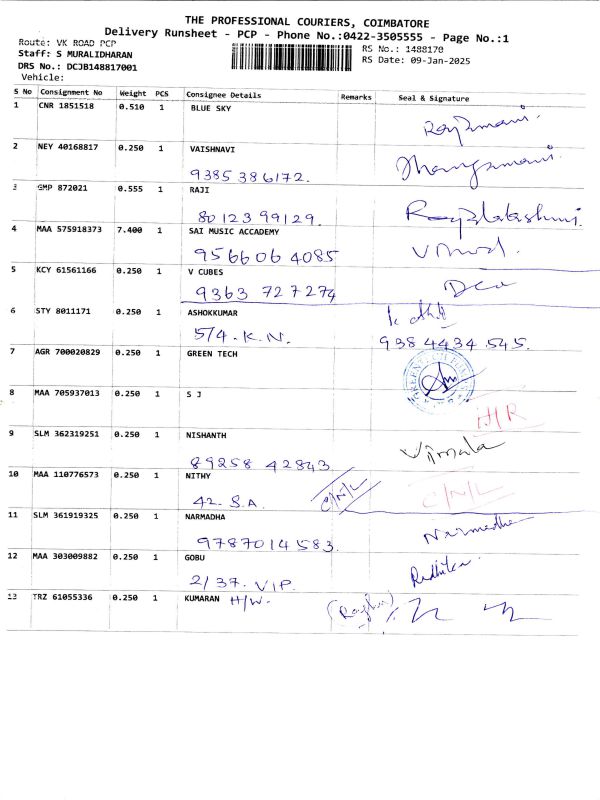 THE PROFESSIONAL COURIERS, COIMBATORE
Delivery Runsheet - PCP - Phone No.:0422-3505555 - Page No.:1
Route: VK ROAD PCP
Staff: S MURALIDHARAN
DRS No.: DCJB148817001
Vehicle:
RS No.: 1488170
RS Date: 09-Jan-2025
S No Consignment No Weight PCS Consignee Details Remarks Seal & Signature
1 CNR 1851518 0.510 1 BLUE SKY
2 NEY 40168817 0.250 1 VAISHNAVI
9385386172.
3 GMP 872021 0.555 1 RAJI
80123 99129.
4 MAA 575918373 7.400 1 SAI MUSIC ACCADEMY
9566064085
5 KCY 61561166 0.250 1 V CUBES
9363 727274
6 STY 8011171 0.250 1 ASHOKKUMAR
5/4. K.N. 9384434 545.
7 AGR 700020829 0.250 1 GREEN TECH
8 MAA 705937013 0.250 1 S J
9 SLM 362319251 0.250 1 NISHANTH Vimala
89258 42843
10 MAA 110776573 0.250 1 NITHY C/N/L C/N/L
42. S.A.
11 SLM 361919325 0.250 1 NARMADHA Narmadha
9787014583.
12 MAA 303009882 0.250 1 GOBU
2/37. VIP.
13 TRZ 61055336 0.250 1 KUMARAN H/W.